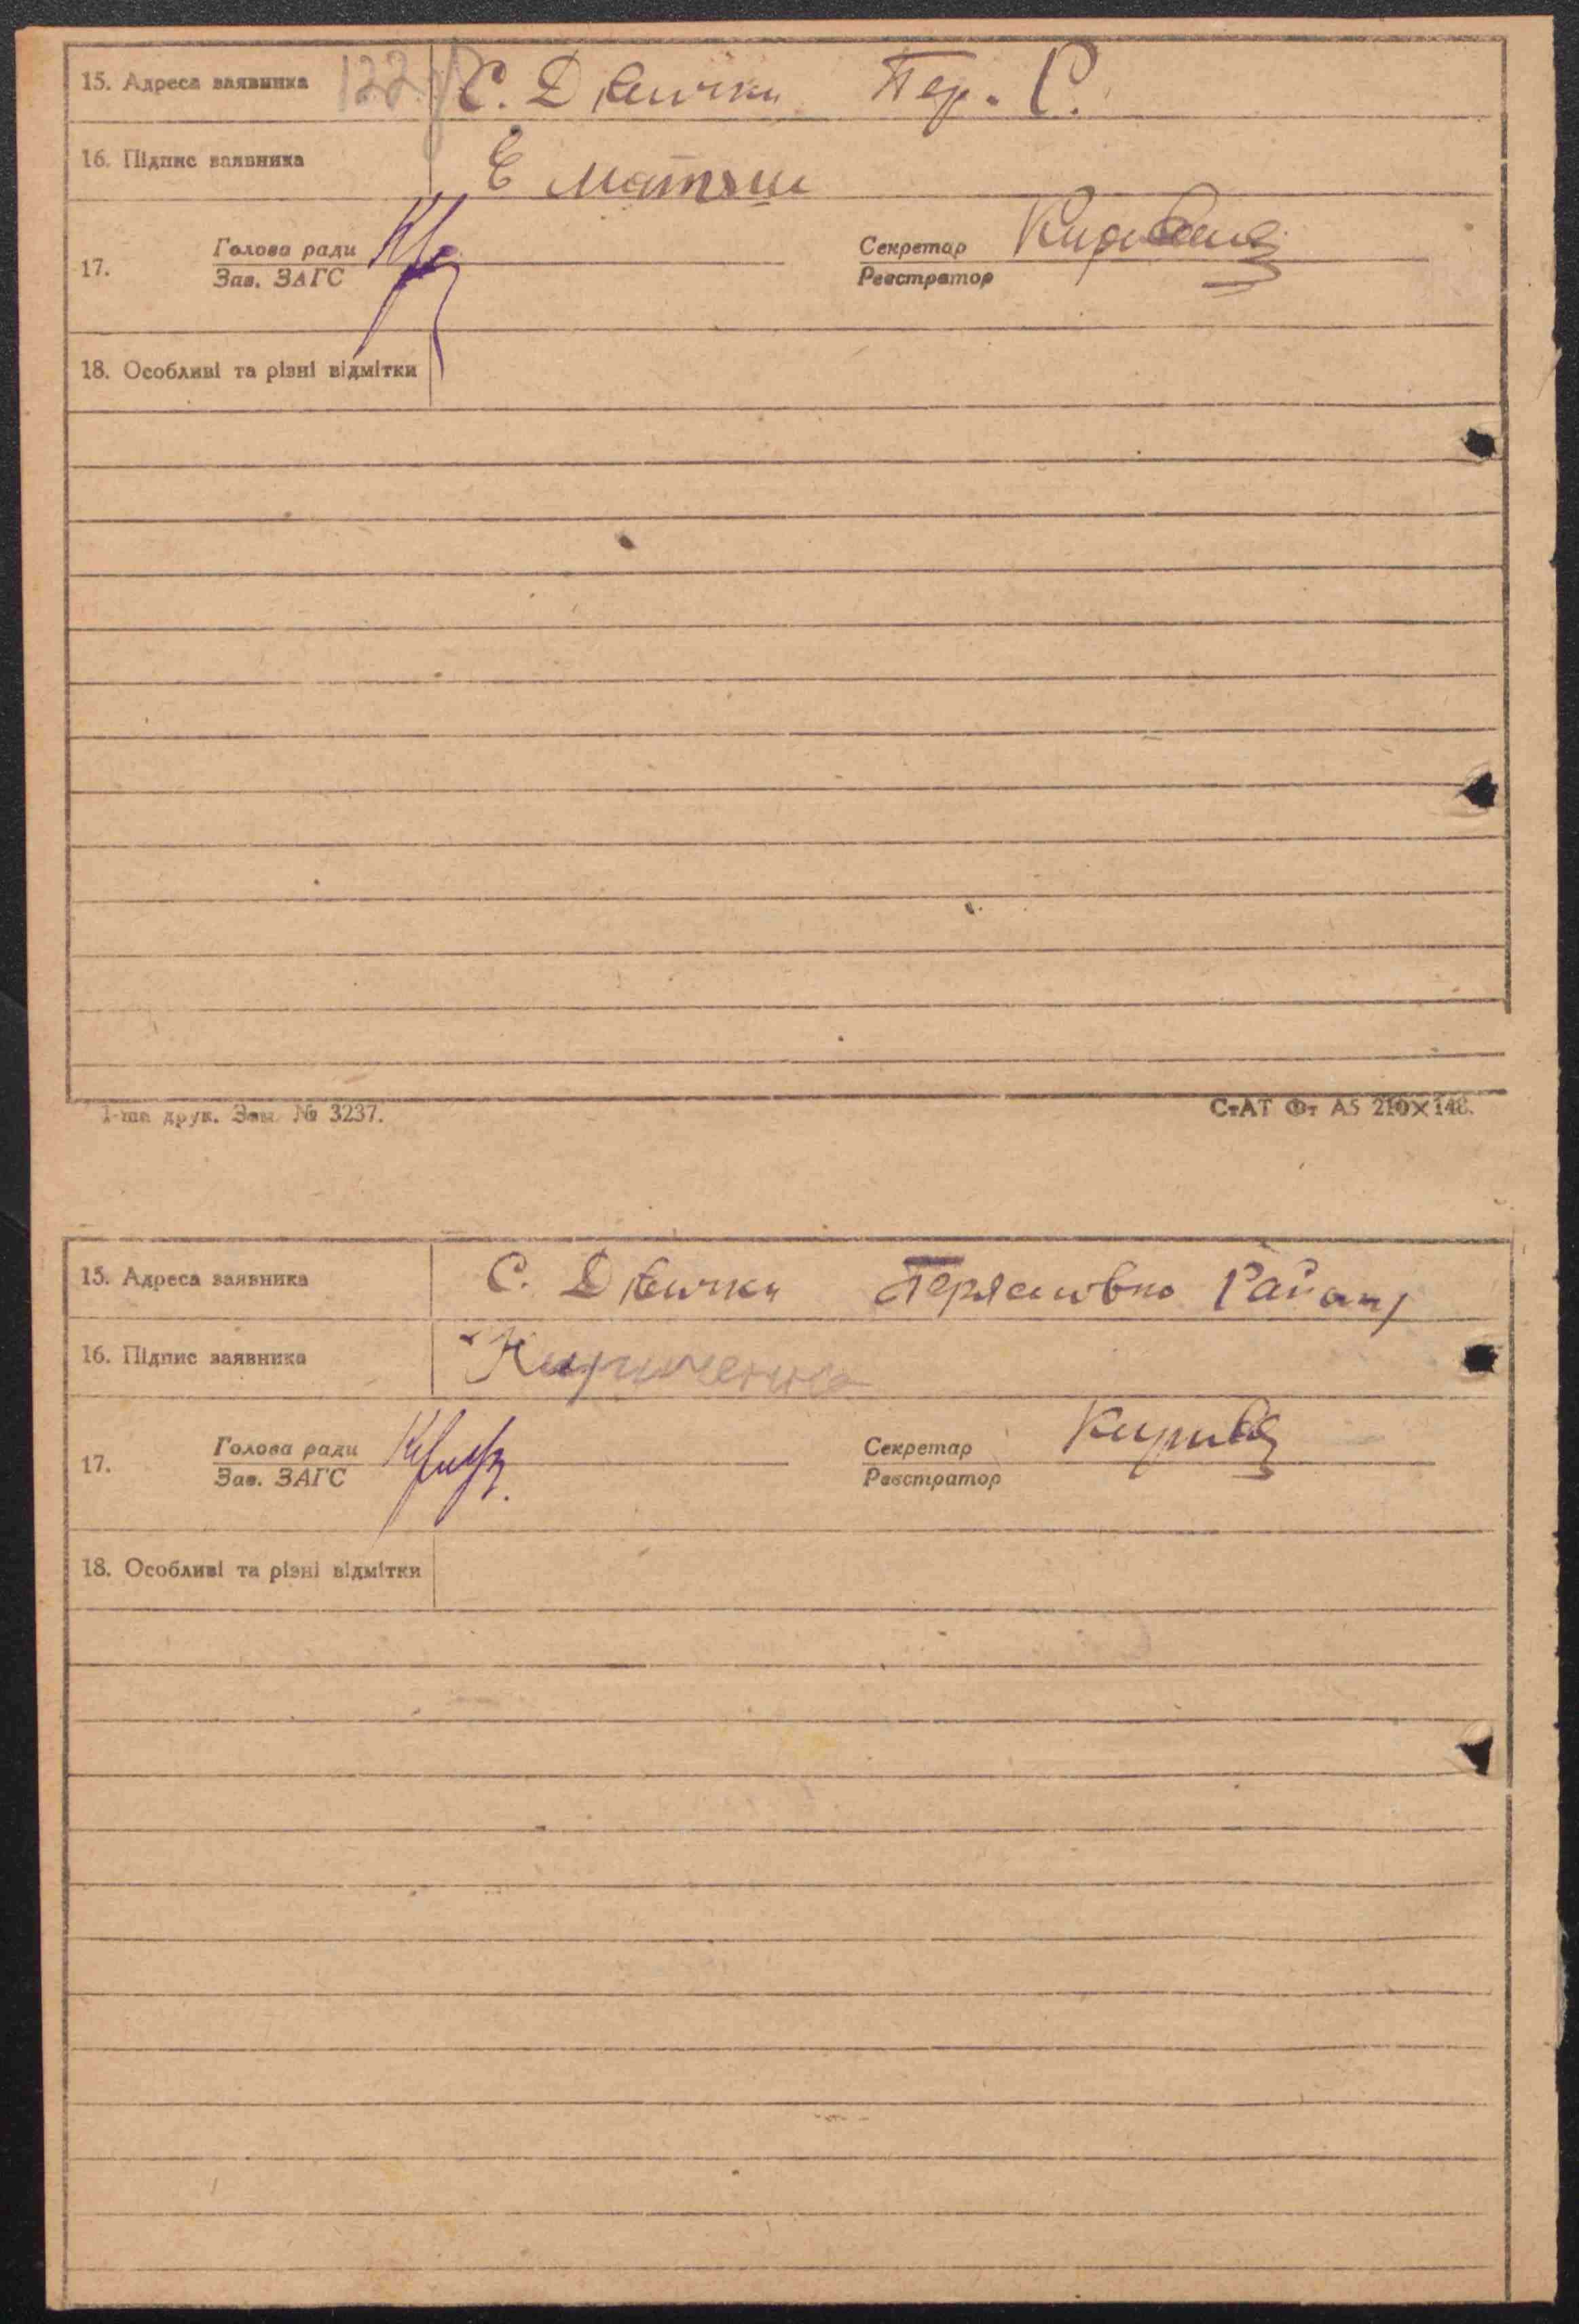 15. Адреса заявника 122 С. Дівички Пер. Р.
16. Підпис заявника Є Матяш
Голова ради Секретар
17.
Зав. ЗАГС Реєстратор
18. Особливі та різні відмітки
1-ша друк. Зам. № 3237. СтАТ Фт А5 210×148.
15. Адреса заявника С. Дівички Району
16. Підпис заявника Кириченко
Голова ради Секретар
17.
Зав. ЗАГС Реєстратор
18. Особливі та різні відмітки